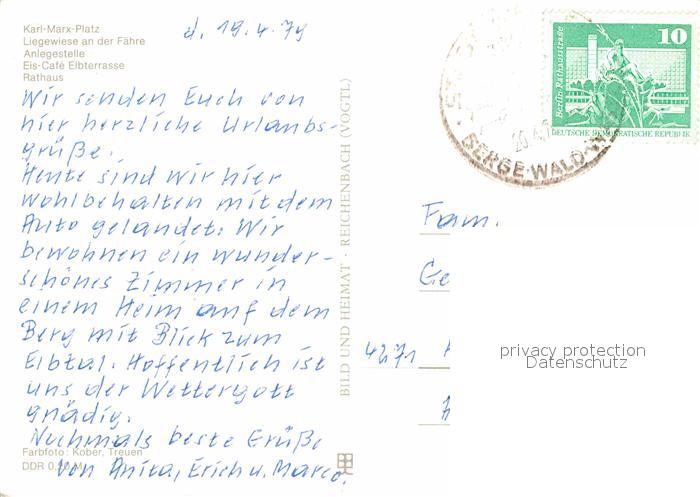 Karl-Marx-Platz
Liegewiese an der Fähre
Anlegestelle
Eis-Café Elbterrasse
Rathaus
d. 19.4.79
Wir senden Euch von
hier herzliche Urlaubs-
grüße.
Heute sind wir hier
wohlbehalten mit dem
Auto gelandet. Wir
bewohnen ein wunder-
schönes Zimmer in
einem Heim auf dem
Berg mit Blick zum
Elbtal. Hoffentlich ist
uns der Wettergott
gnädig.
Nochmals beste Grüße
von Anita, Erich u. Marco.
Farbfoto: Kober, Treuen
DDR 0, M
BILD UND HEIMAT · REICHENBACH (VOGTL)
BERGE·WALD
20.4.7
10
Berlin, Rathausstraße
DEUTSCHE DEMOKRATISCHE REPUBLIK
Fam.
Ge
4271
privacy protection
Datenschutz